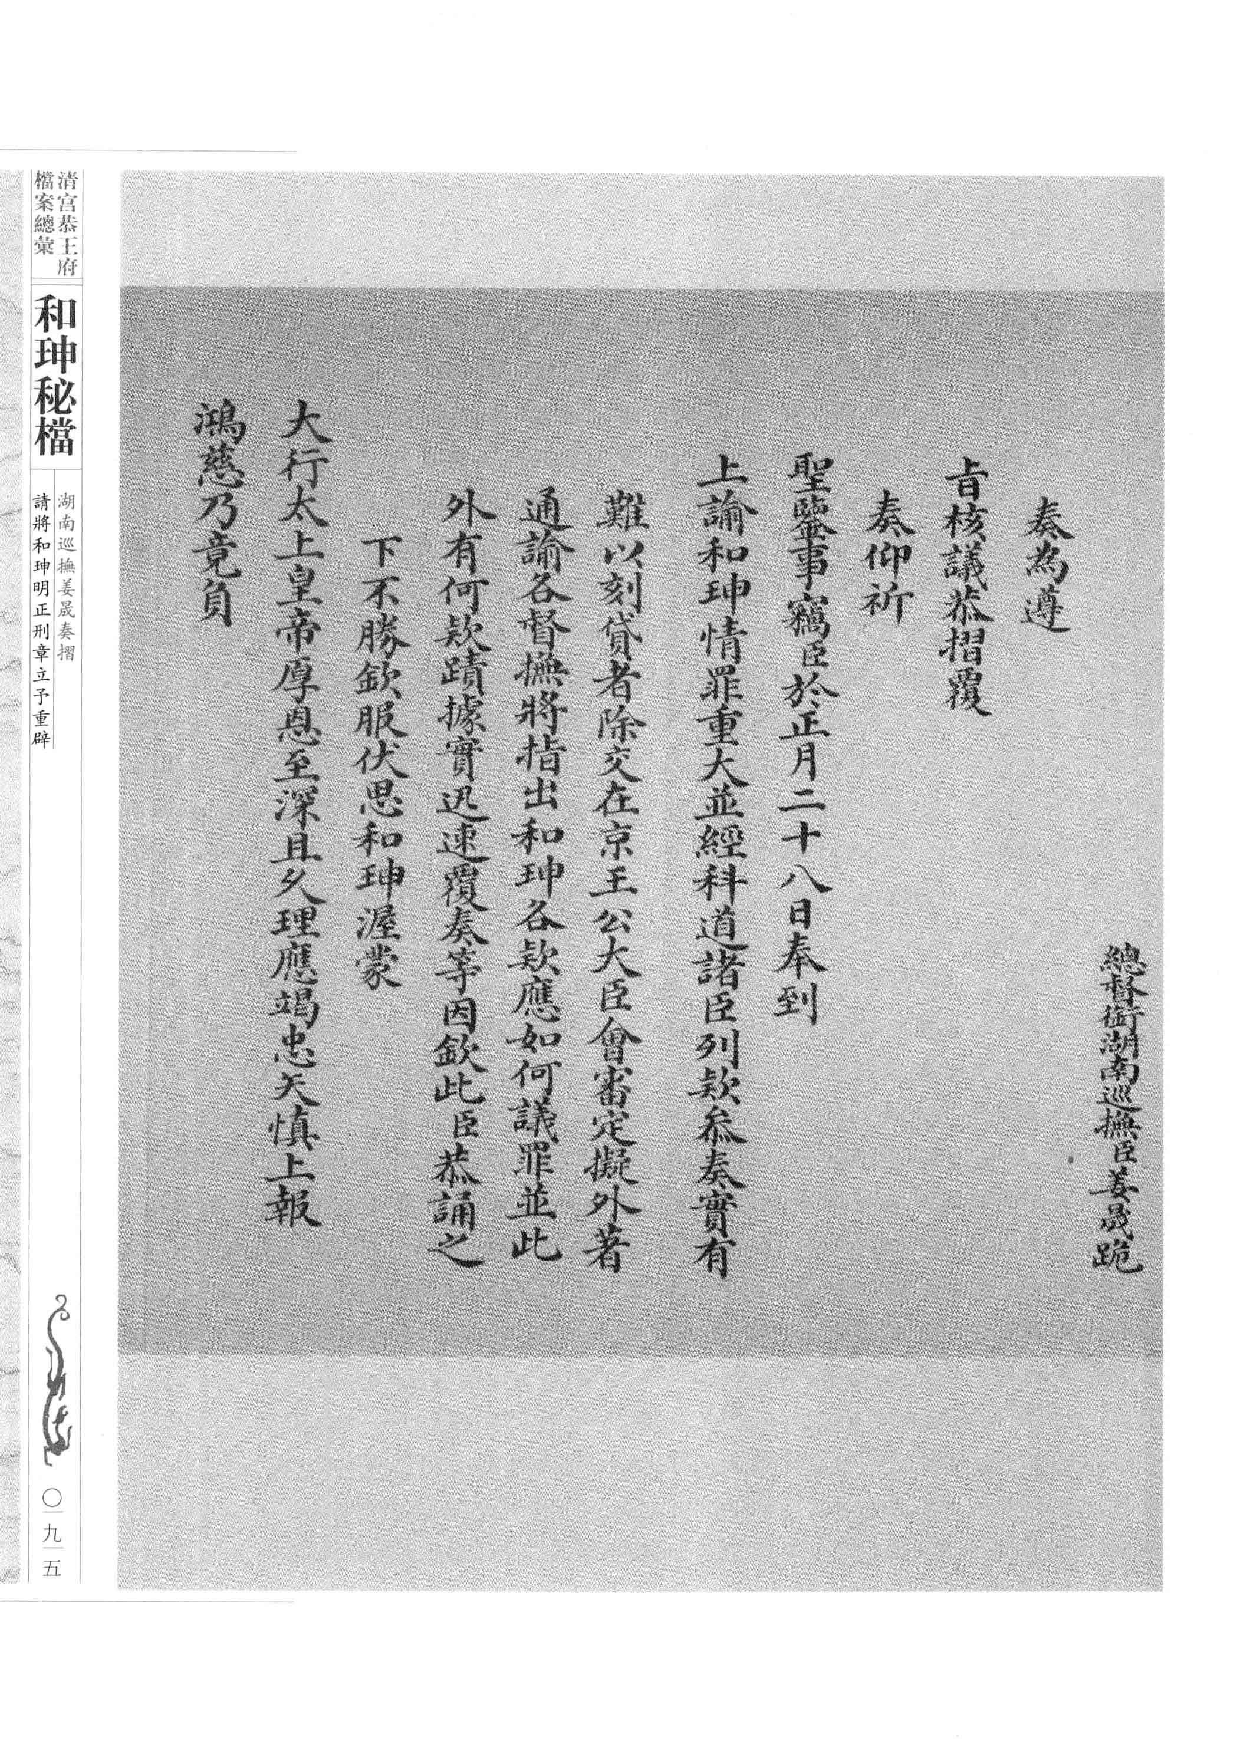 總督銜湖南巡撫臣姜晟跪
奏為遵
旨核議恭摺覆
奏仰祈
聖鑒事竊臣於正月二十八日奉到
上諭和珅情罪重大並經科道諸臣列款參奏實有
難以刻貸者除交在京王公大臣會審定擬外著
通諭各督撫將指出和珅各款應如何議罪並此
外有何款蹟據實迅速覆奏等因欽此臣恭誦之
下不勝欽服伏思和珅渥蒙
大行太上皇帝厚恩至深且久理應竭忠矢慎上報
鴻慈乃竟負
清宮恭王府
檔案總彙
和珅秘檔
湖南巡撫姜晟奏摺
請將和珅明正刑章立予重辟
〇九五